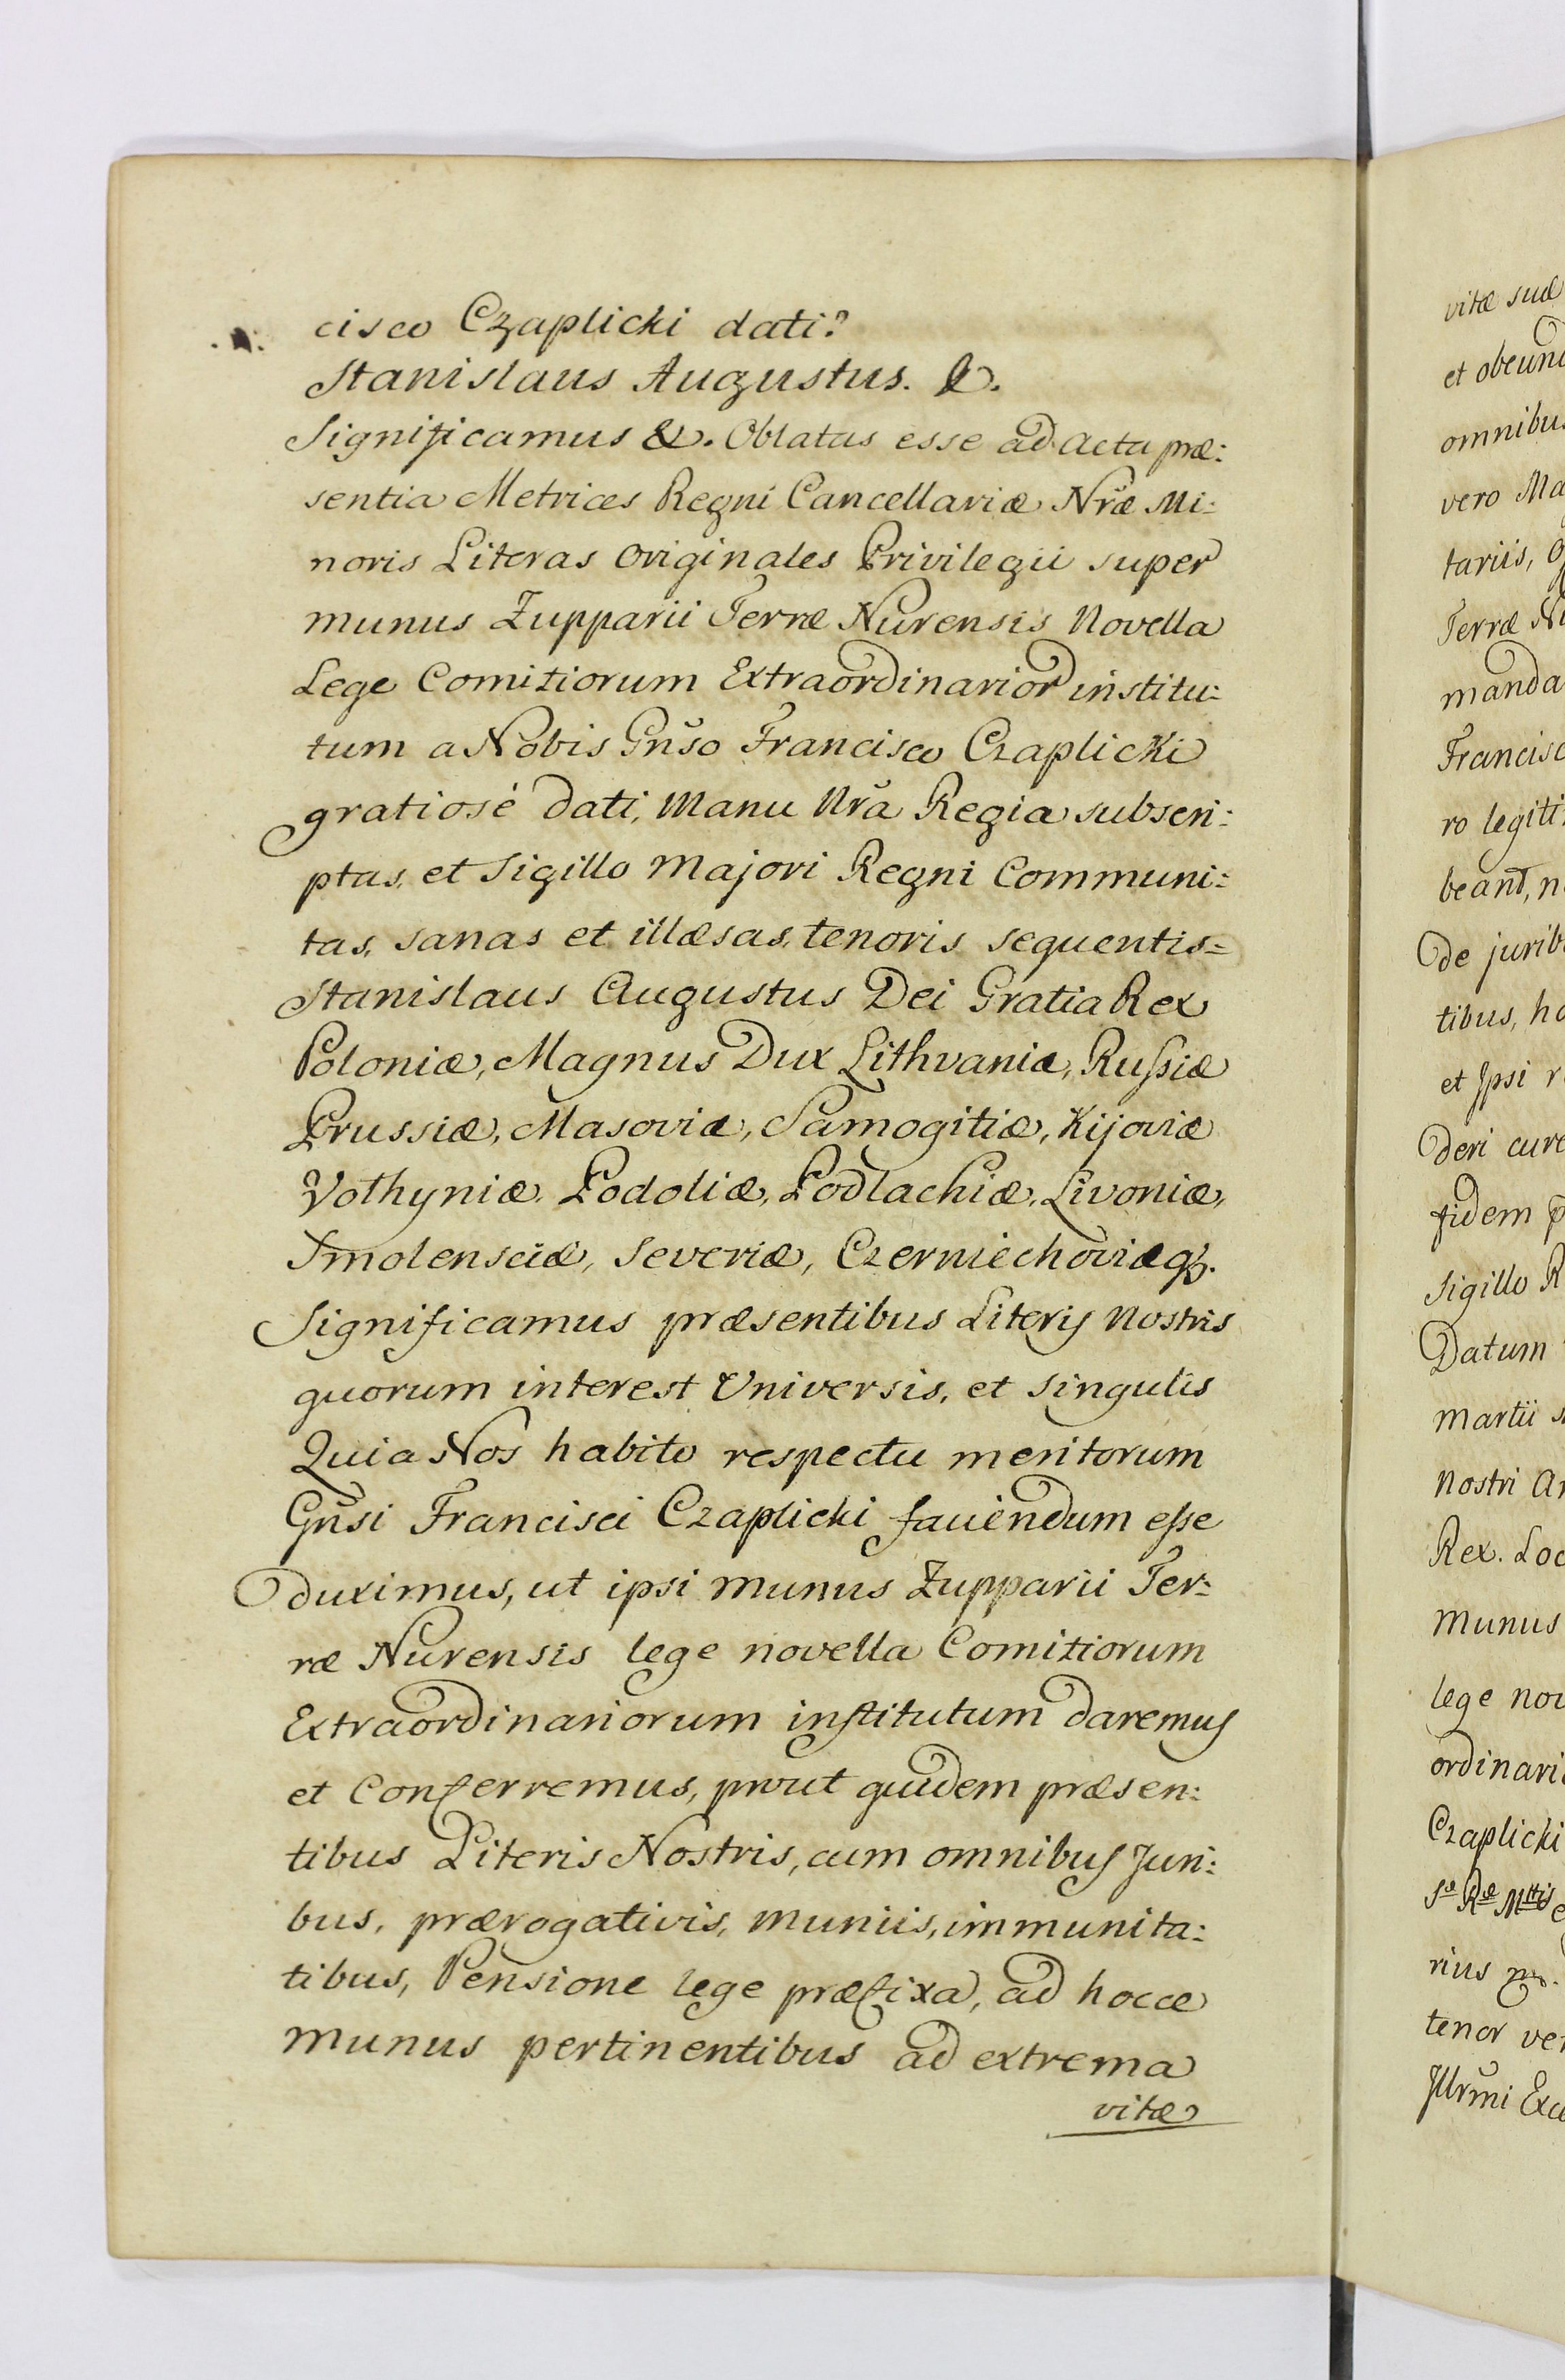 cisco Czaplicki dati.
Stanislaus Augustus. &.
Significamus &. Oblatas esse ad Acta præ:
sentia Metrices Regni Cancellariæ Nræ Mi:
noris Literas Originales Privilegii super
munus Zupparii Terræ Nurensis Novella
Lege Comitiorum Extraordinarior institu:
tum a Nobis Gnso Francisco Czaplicki
gratiosè dati, Manu Nrā Regia subscri:
ptas, et Sigillo Majori Regni Communi:
tas, sanas et illæsas, tenoris sequentis=
Stanislaus Augustus Dei Gratia Rex
Poloniæ, Magnus Dux Lithvaniæ, Russiæ
Prussiæ, Masoviæ, Samogitiæ, Kijoviæ
Volhyniæ, Podoliæ, Podlachiæ, Livoniæ,
Smolensciæ, Severiæ, Czerniechoviæq3.
Significamus præsentibus Literis Nostris
quorum interest Universis, et singulis
Quia Nos habito respectu meritorum
Gnsi Francisci Czaplicki faviendum esse
duximus, ut ipsi munus Zupparii Ter:
ræ Nurensis lege novella Comitiorum
Extraordinariorum institutum daremus
et Conferremus, prout quidem præsen:
tibus Literis Nostris, cum omnibus Juri:
bus, prærogativis, muniis, immunita:
tibus, Pensione lege præfixa, ad hocce
munus pertinentibus ad extrema
vitæ
vitæ suæ
et obeund
omnibus
vero Ma
tariis, O
Terræ Nu
manda
Francisc
ro legiti
beant, n
de jurib
tibus, ho
et Ipsi r
deri cure
fidem p
Sigillo R
Datum
Martii
Nostri An
Rex. Loc
Munus
lege nov
ordinari
Czaplicki
Sæ Ræ Mttis
rius mp.
tenor ver
Illrmi Exce